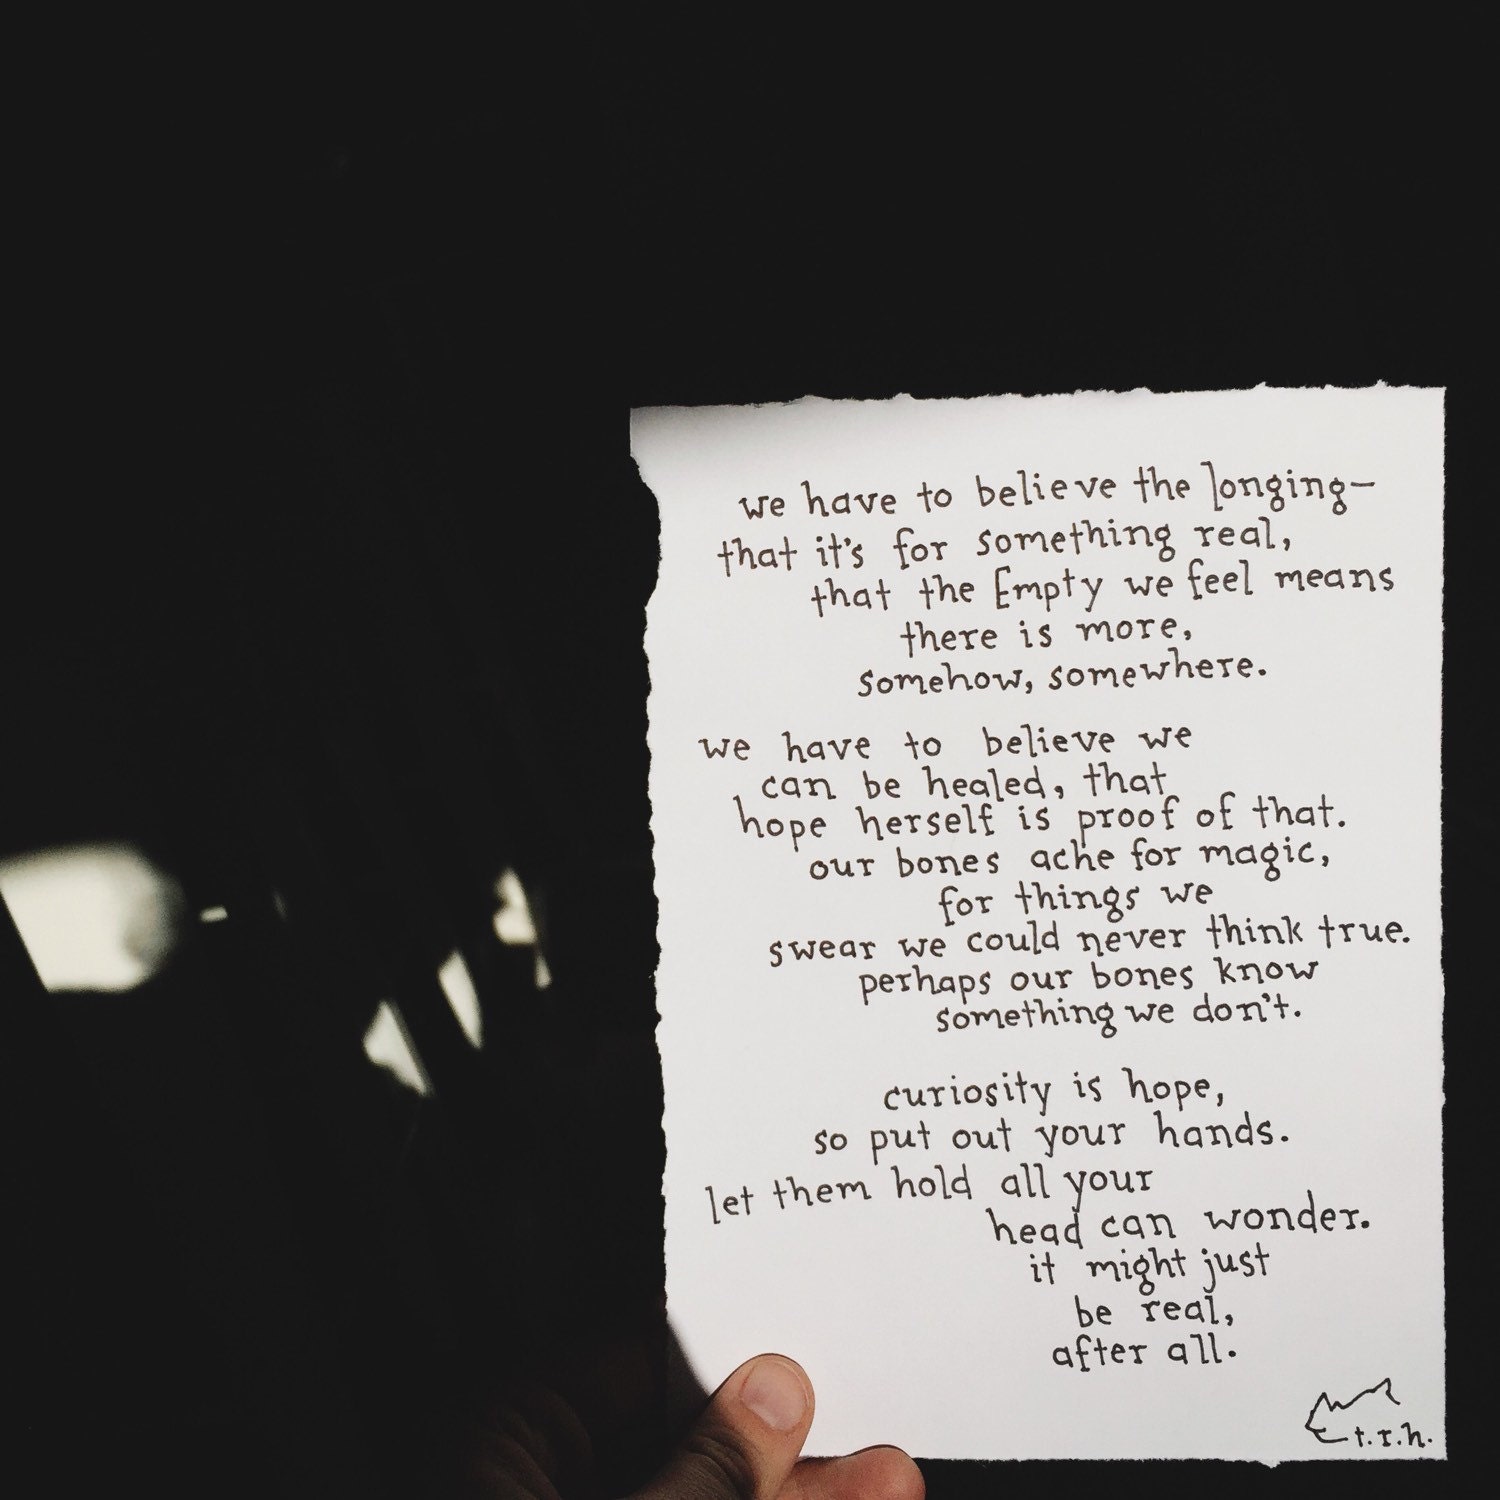 we have to believe the longing—
that it's for something real,
that the Empty we feel means
there is more,
somehow, somewhere.
we have to believe we
can be healed, that
hope herself is proof of that.
our bones ache for magic,
for things we
swear we could never think true.
perhaps our bones know
something we don't.
curiosity is hope,
so put out your hands.
let them hold all your
head can wonder.
it might just
be real,
after all.
t.r.h.